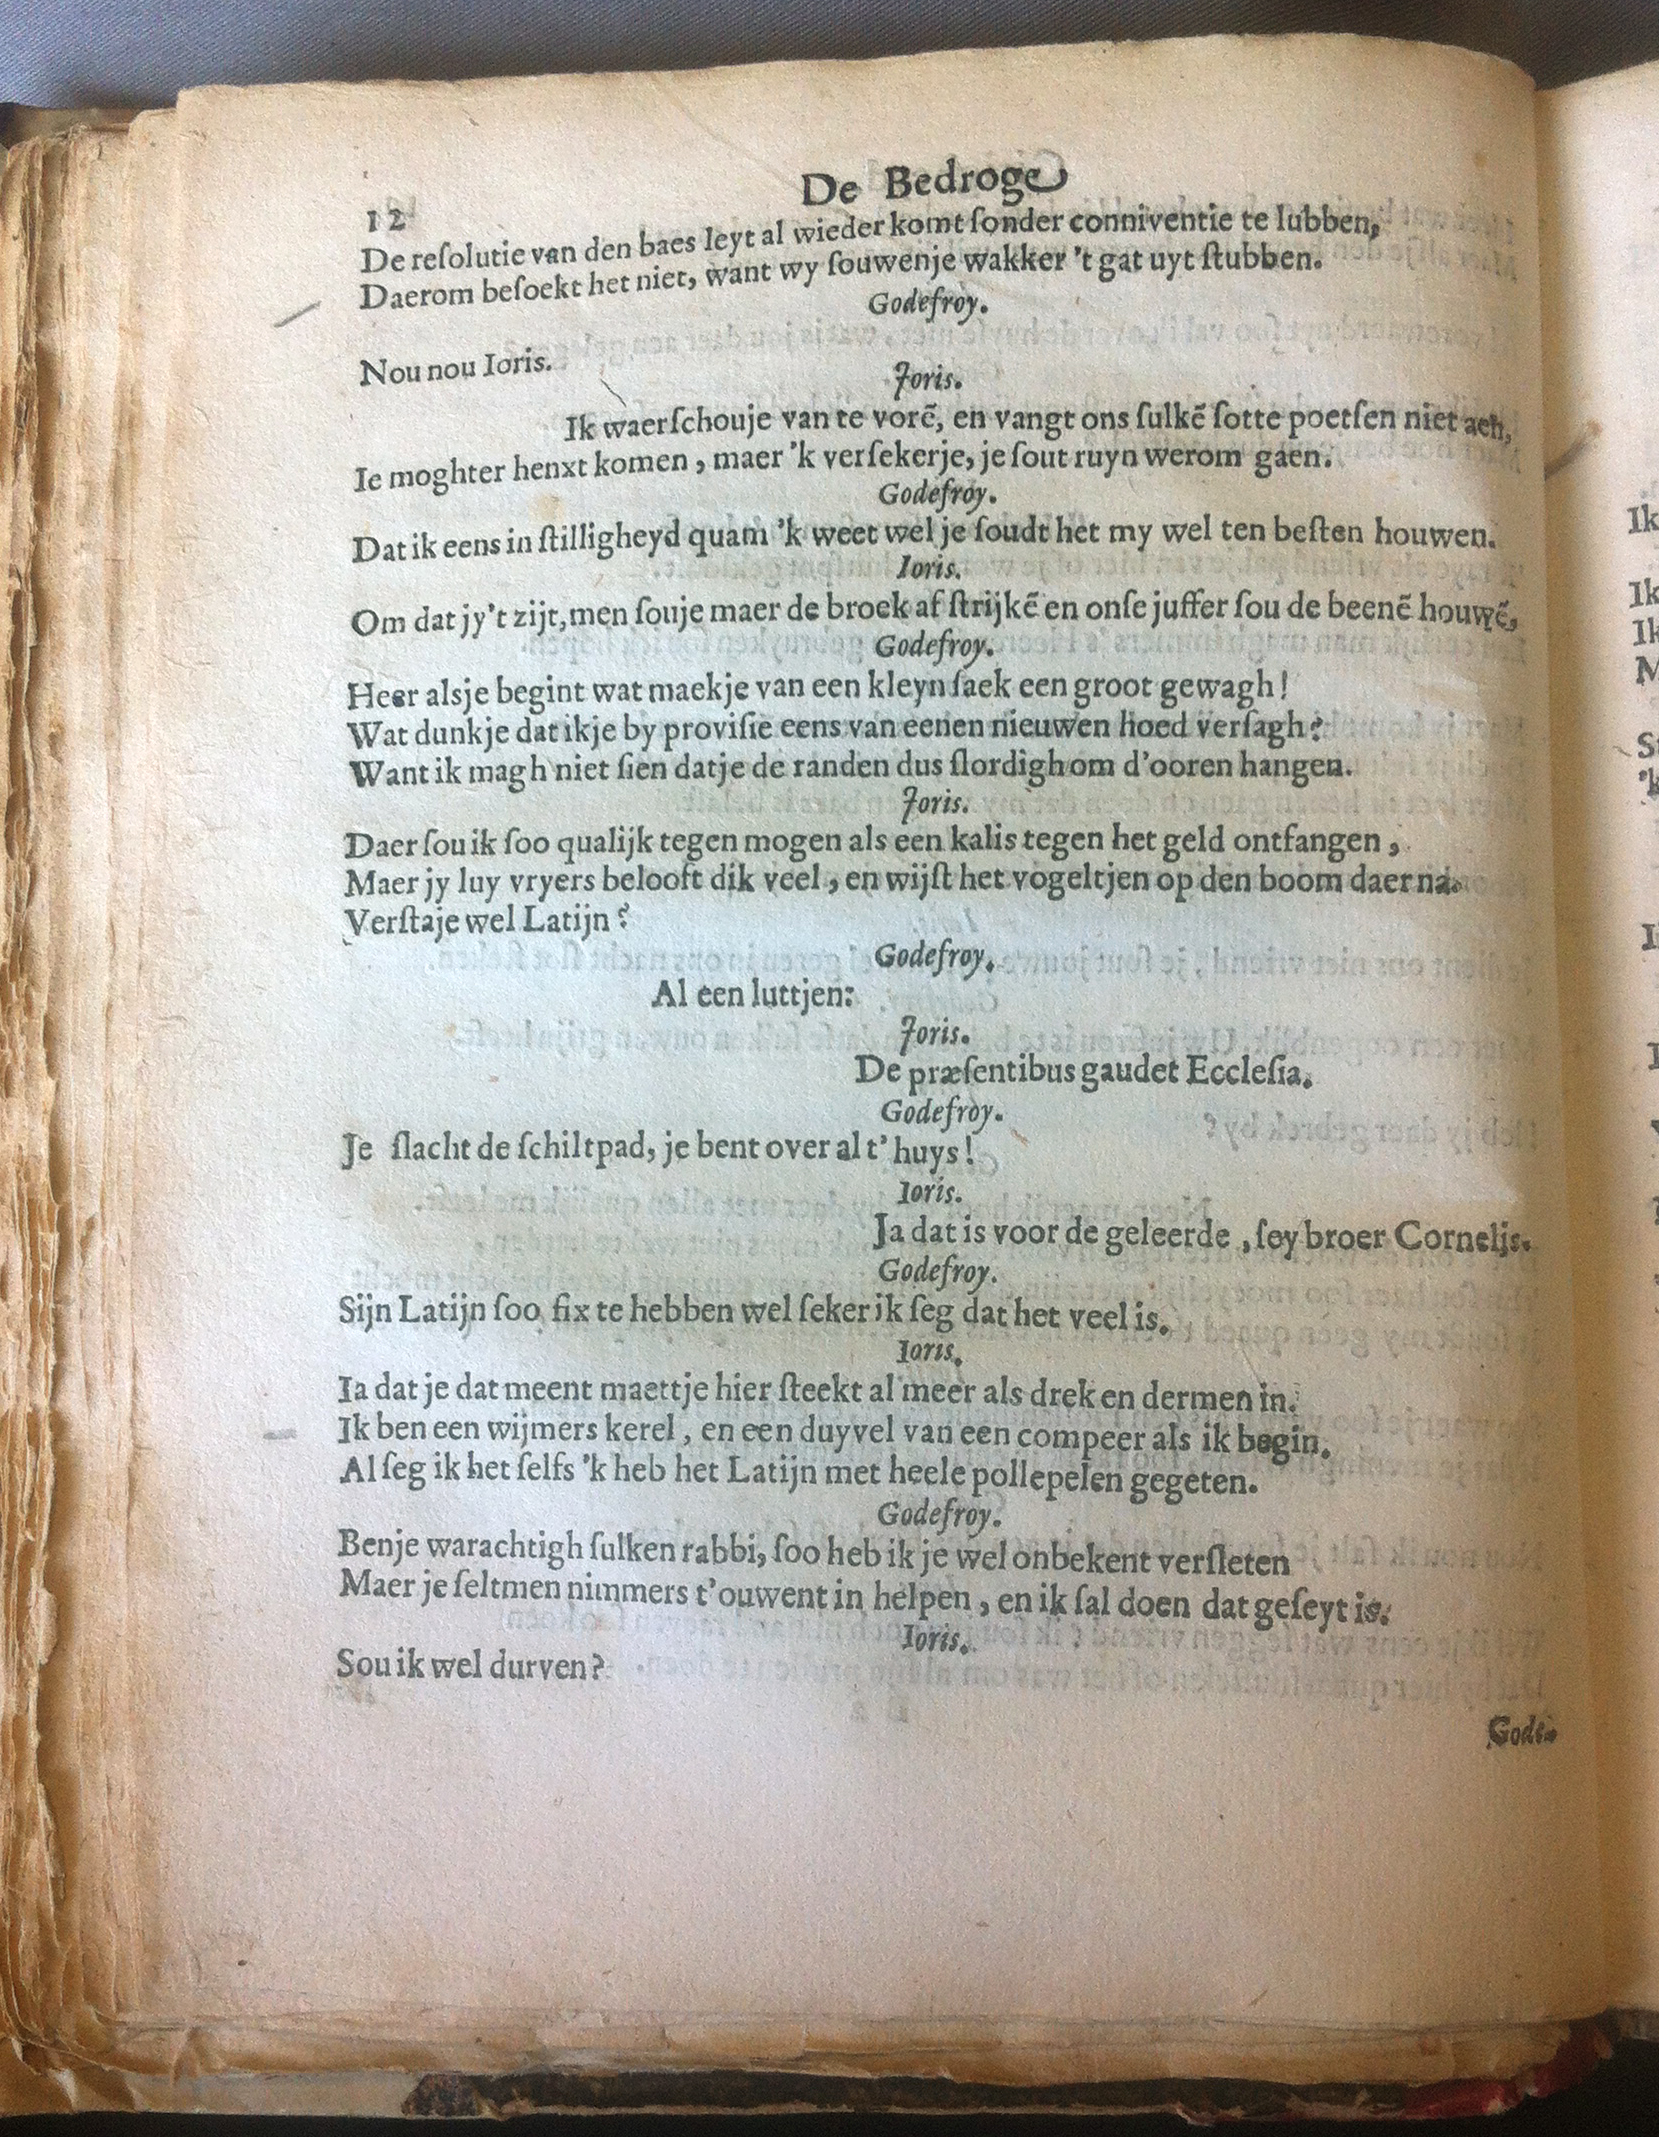 De Bedroge
12
De resolutie van den baes leyt al wieder komt sonder conniventie te lubben,
Daerom besoekt het niet, want wy souwenje wakker 't gat uyt stubben.
Godefroy.
Nou nou Ioris.
Joris.
Ik waerschouje van te vorẽ, en vangt ons sulkẽ sotte poetsen niet aen,
Ie moghter henxt komen, maer 'k versekerje, je sout ruyn werom gaen.
Godefroy.
Dat ik eens in stilligheyd quam 'k weet wel je soudt het my wel ten besten houwen.
Ioris.
Om dat jy't zijt, men souje maer de broek af strijkẽ en onse juffer sou de beenẽ houwẽ,
Godefroy.
Heer alsje begint wat maekje van een kleyn saek een groot gewagh!
Wat dunkje dat ikje by provisie eens van eenen nieuwen hoed versagh?
Want ik magh niet sien datje de randen dus slordigh om d'ooren hangen.
Joris.
Daer sou ik soo qualijk tegen mogen als een kalis tegen het geld ontfangen,
Maer jy luy vryers belooft dik veel, en wijst het vogeltjen op den boom daer na.
Verstaje wel Latijn?
Godefroy.
Al een luttjen:
Joris.
De præsentibus gaudet Ecclesia.
Godefroy.
Je slacht de schiltpad, je bent over al t'huys!
Ioris.
Ja dat is voor de geleerde, sey broer Cornelis.
Godefroy.
Sijn Latijn soo fix te hebben wel seker ik seg dat het veel is.
Ioris.
Ia dat je dat meent maettje hier steekt al meer als drek en dermen in.
Ik ben een wijmers kerel, en een duyvel van een compeer als ik begin.
Al seg ik het selfs 'k heb het Latijn met heele pollepelen gegeten.
Godefroy.
Benje warachtigh sulken rabbi, soo heb ik je wel onbekent versleten
Maer je seltmen nimmers t'ouwent in helpen, en ik sal doen dat geseyt is.
Ioris.
Sou ik wel durven?
Gode-